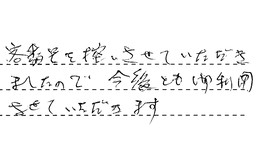 を控えさせていただき
ましたので 今後とも御利用
させていただきます